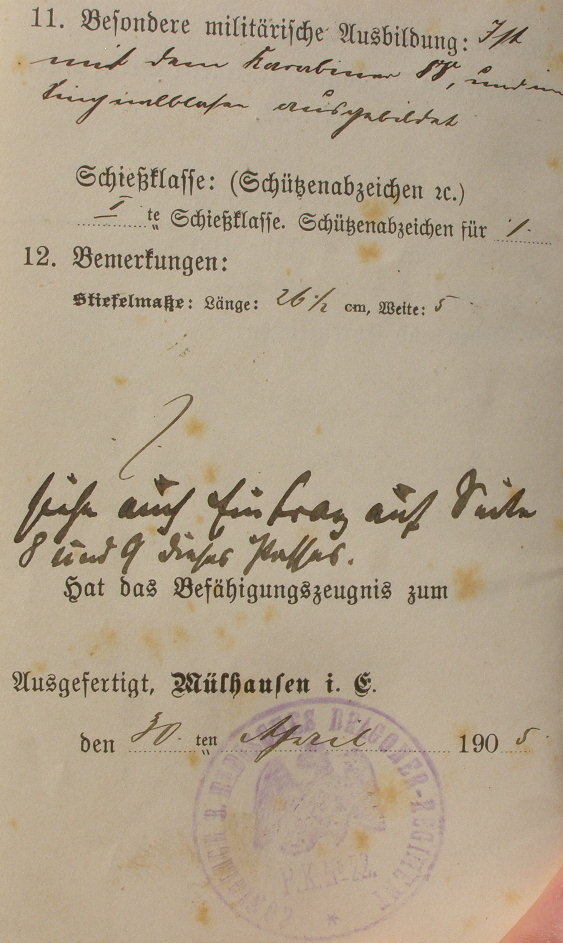 11. Besondere militärische Ausbildung: Ist
mit dem Karabiner 88, und im
Signalblasen ausgebildet
Schießklasse: (Schützenabzeichen ꝛc.)
I te Schießklasse. Schützenabzeichen für /
12. Bemerkungen:
Stiefelmaße: Länge: 26 1/2 cm, Weite: 5
siehe auch Eintrag auf Seite
8 und 9 dieses Passes.
Hat das Befähigungszeugnis zum
Ausgefertigt, Mülhausen i. E.
den 30. ten April 1905
DRAGONER-REGIMENT